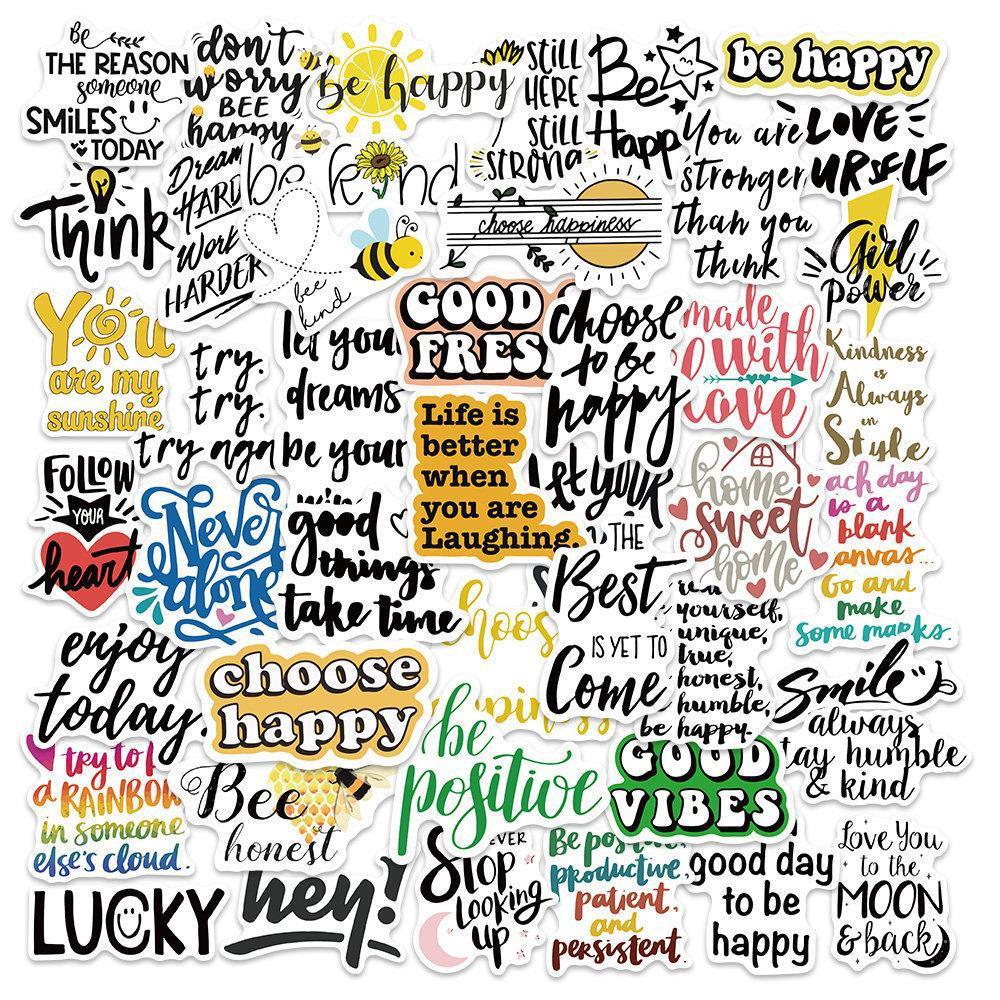 Be
THE REASON
someone
SMILES
TODAY
don't
worry
BEE
happy
be happy
STILL
HERE
STILL
STRONG
Be
Happ
be happy
You are
stronger
than you
think
LOVE
URSELF
Think
Dream
HARD
Work
HARDER
be kind
bee
kind
choose happiness
Girl
Power
You
are my
sunshine
try.
try.
try again
let you
dreams
be your
GOOD
FRES
choose
to be
happy
made
with
love
Kindness
is
Always
in
Style
FOLLOW
YOUR
heart
Never
alone
good
things
take time
Life is
better
when
you are
Laughing.
let your
home
sweet
home
ach day
is a
blank
anvas...
Go and
make
some marks.
THE
Best
IS YET TO
Come
yourself,
unique,
true,
honest,
humble,
be happy.
enjoy
today.
choose
happy
hoos
pin
be
positive
Smile
always
tay humble
& kind
try to
a RAINBOW
in someone
else's cloud.
Bee
honest
GOOD
VIBES
LUCKY
hey!
EVER
Stop
Looking
up
Be pos
productive,
patient,
and
persistent.
good day
to be
happy
Love You
to the
MOON
& back